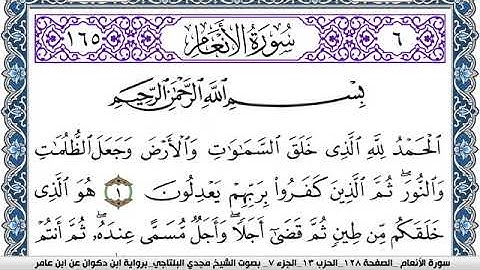 ٦ سُورَةُ الأَنْعَامِ ١٦٥
بِسْمِ اللَّهِ الرَّحْمَٰنِ الرَّحِيمِ
الْحَمْدُ لِلَّهِ الَّذِي خَلَقَ السَّمَاوَاتِ وَالْأَرْضَ وَجَعَلَ الظُّلُمَاتِ
وَالنُّورَ ۖ ثُمَّ الَّذِينَ كَفَرُوا بِرَبِّهِمْ يَعْدِلُونَ ١ هُوَ الَّذِي
خَلَقَكُمْ مِنْ طِينٍ ثُمَّ قَضَىٰ أَجَلًا ۖ وَأَجَلٌ مُسَمًّى عِنْدَهُ ۖ ثُمَّ أَنْتُمْ
سورة الأنعام_الصفحة ١٢٨_الحزب ١٣_الجزء ٧_ بصوت الشيخ مجدي البلتاجي_برواية ابن ذكوان عن ابن عامر